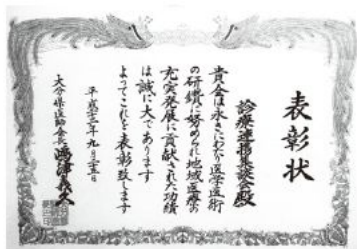 表彰状
診療連携集談会殿
貴会は永きにわたり医学医術
の研鑽に努められ地域医療の
充実発展に貢献された功績
は誠に大であります
よってこれを表彰致します
平成十二年九月二十五日
大分県医師会長